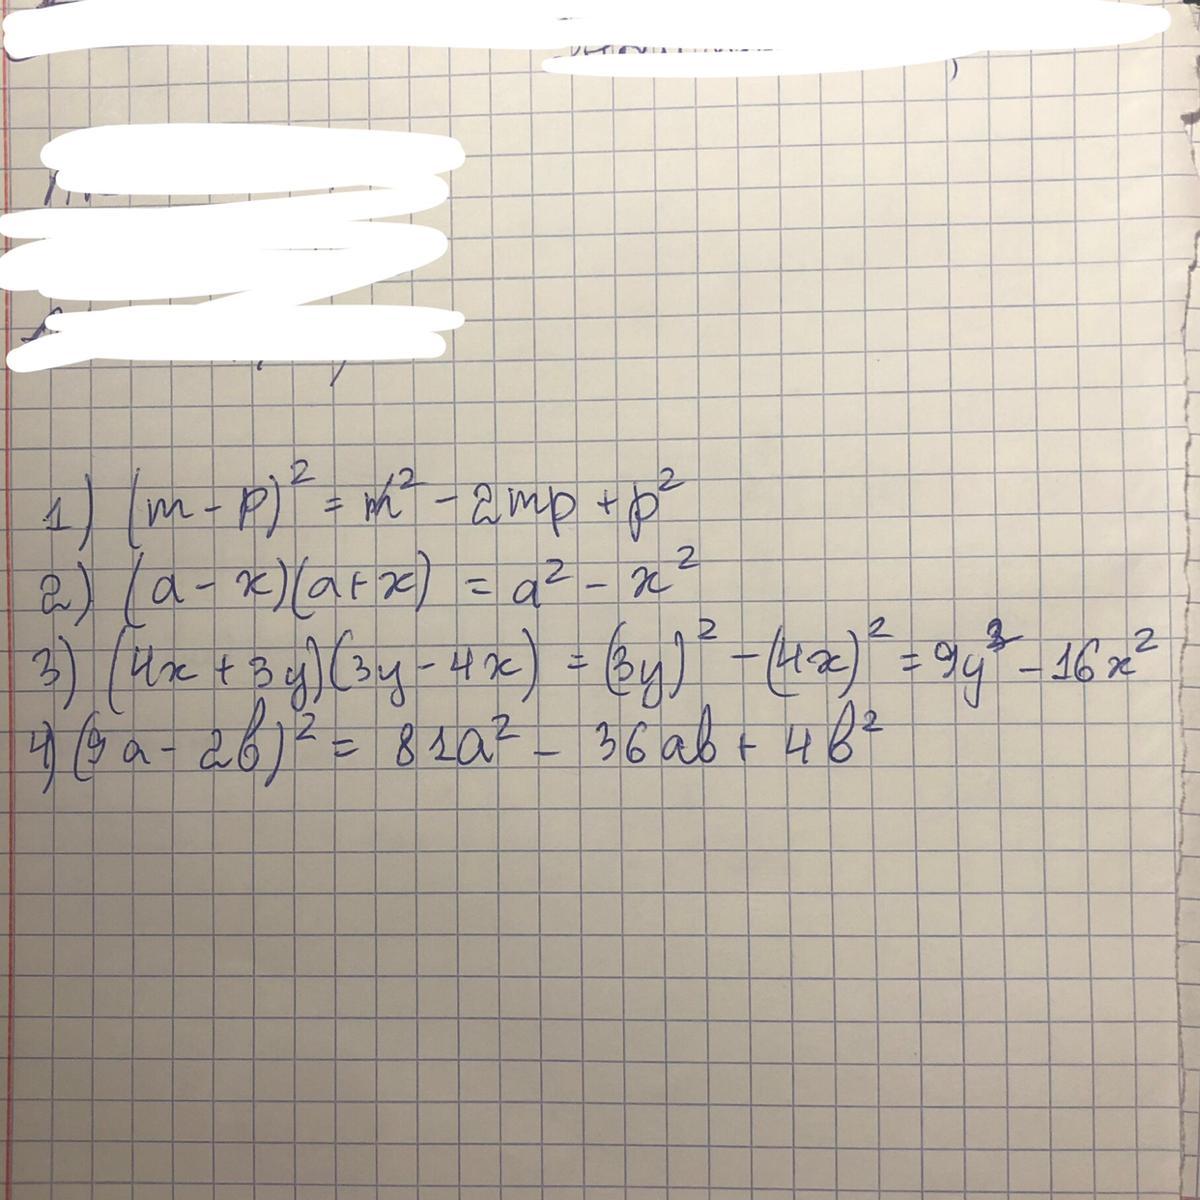 1) (m - p)² = m² - 2mp + p²
2) (a - x)(a + x) = a² - x²
3) (4x + 3y)(3y - 4x) = (3y)² - (4x)² = 9y² - 16x²
4) (9a - 2b)² = 81a² - 36ab + 4b²